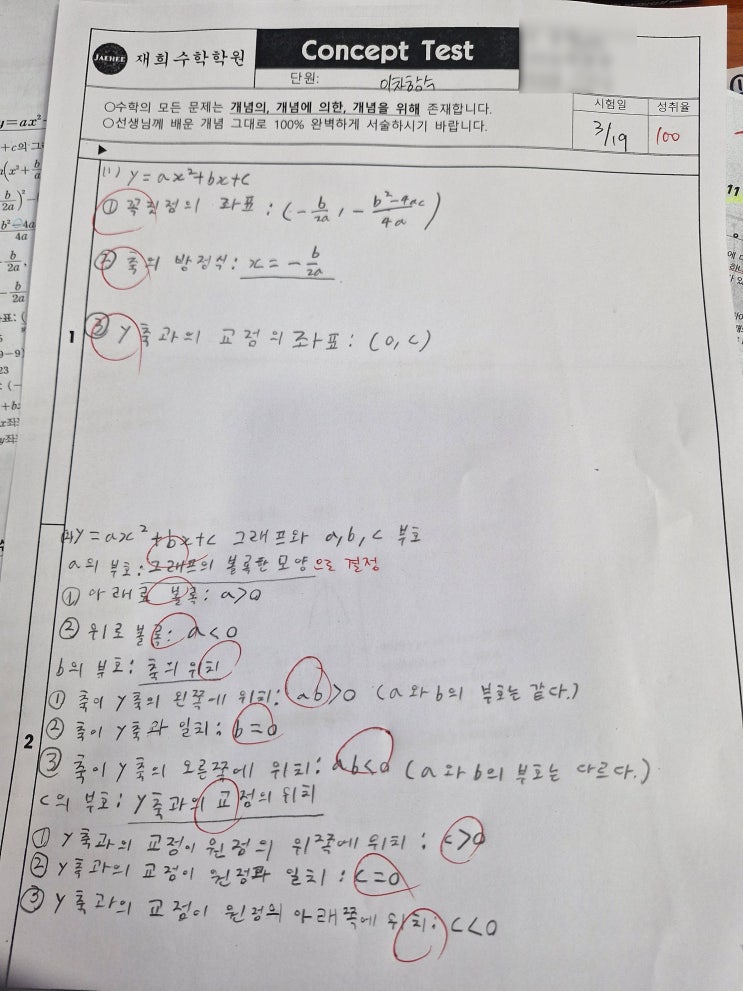 JAEHEE 재희수학학원
Concept Test
단원: 이차함수
○수학의 모든 문제는 개념의, 개념에 의한, 개념을 위해 존재합니다.
○선생님께 배운 개념 그대로 100% 완벽하게 서술하시기 바랍니다.
시험일 성취율
3/19 100
▶
1
(1) y=ax²+bx+c
① 꼭짓점의 좌표: (-b/2a, -b²-4ac/4a)
② 축의 방정식: x=-b/2a
③ y축과의 교점의 좌표: (0, c)
2
(2) y=ax²+bx+c 그래프와 a,b,c 부호
a의 부호: 그래프의 볼록한 모양으로 결정
① 아래로 볼록: a>0
② 위로 볼록: a<0
b의 부호: 축의 위치
① 축이 y축의 왼쪽에 위치: ab>0 (a와 b의 부호는 같다.)
② 축이 y축과 일치: b=0
③ 축이 y축의 오른쪽에 위치: ab<0 (a와 b의 부호는 다르다.)
c의 부호: y축과의 교점의 위치
① y축과의 교점이 원점의 위쪽에 위치: c>0
② y축과의 교점이 원점과 일치: c=0
③ y축과의 교점이 원점의 아래쪽에 위치: c<0